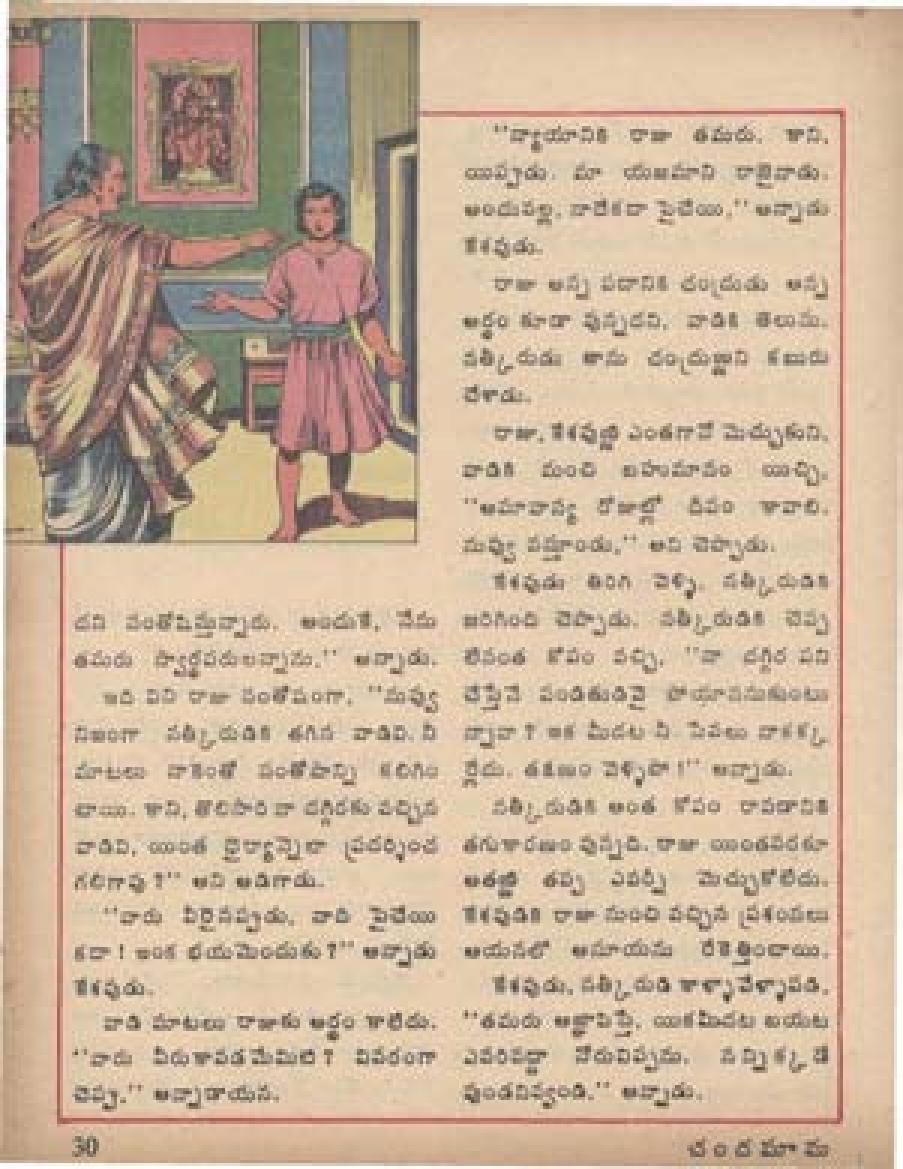 దని సంతోషిస్తున్నారు. అందుకే, నేను
తమరు స్వార్థపరులన్నాను," అన్నాడు.
ఇది విని రాజు సంతోషంగా, "నువ్వు
నిజంగా సత్కీరుడికి తగిన వాడివి. నీ
మాటలు నాకెంతో సంతోషాన్ని కలిగిం
చాయి. కాని, తొలిసారి నా దగ్గిరకు వచ్చిన
వాడివి, యింత ధైర్యాన్నెలా ప్రదర్శించ
గలిగావు?" అని అడిగాడు.
"వారు వీరైనప్పుడు, వాది పైచేయి
కదా! ఇంక భయమెందుకు?" అన్నాడు
కేశవుడు.
వాడి మాటలు రాజుకు అర్థం కాలేదు.
"వారు వీరుకావడమేమిటి? వివరంగా
చెప్పు," అన్నాడాయన.
"న్యాయానికి రాజు తమరు. కాని,
యిప్పుడు. మా యజమాని రాజైనాడు.
అందువల్ల, నాదేకదా పైచేయి," అన్నాడు
కేశవుడు.
రాజు అన్న పదానికి చంద్రుడు అన్న
అర్థం కూడా వున్నదని, వాడికి తెలుసు.
సత్కీరుడు తాను చంద్రుణ్ణని కబురు
చేశాడు.
రాజు, కేశవుణ్ణి ఎంతగానో మెచ్చుకుని,
వాడికి మంచి బహుమానం యిచ్చి,
"అమావాస్య రోజుల్లో దీపం కావాలి.
నువ్వు వస్తూండు," అని చెప్పాడు.
కేశవుడు తిరిగి వెళ్ళి, సత్కీరుడికి
జరిగింది చెప్పాడు. సత్కీరుడికి చెప్ప
లేనంత కోపం వచ్చి, "నా దగ్గిర పని
చేస్తేనే పండితుడివై పోయాననుకుంటు
న్నావా? ఇక మీదట నీ సేవలు నాకక్క
ర్లేదు. తక్షణం వెళ్ళిపో!" అన్నాడు.
సత్కీరుడికి అంత కోపం రావడానికి
తగుకారణం వున్నది. రాజు యింతవరకూ
అతణ్ణి తప్ప ఎవర్నీ మెచ్చుకోలేదు.
కేశవుడికి రాజు నుంచి వచ్చిన ప్రశంసలు
ఆయనలో అసూయను రేకెత్తించాయి.
కేశవుడు, సత్కీరుడి కాళ్ళావేళ్ళాపడి,
"తమరు ఆజ్ఞాపిస్తే, యికమీదట బయట
ఎవరివద్దా నోరువిప్పను. నన్నిక్కడే
వుండనివ్వండి," అన్నాడు.
30
చందమామ